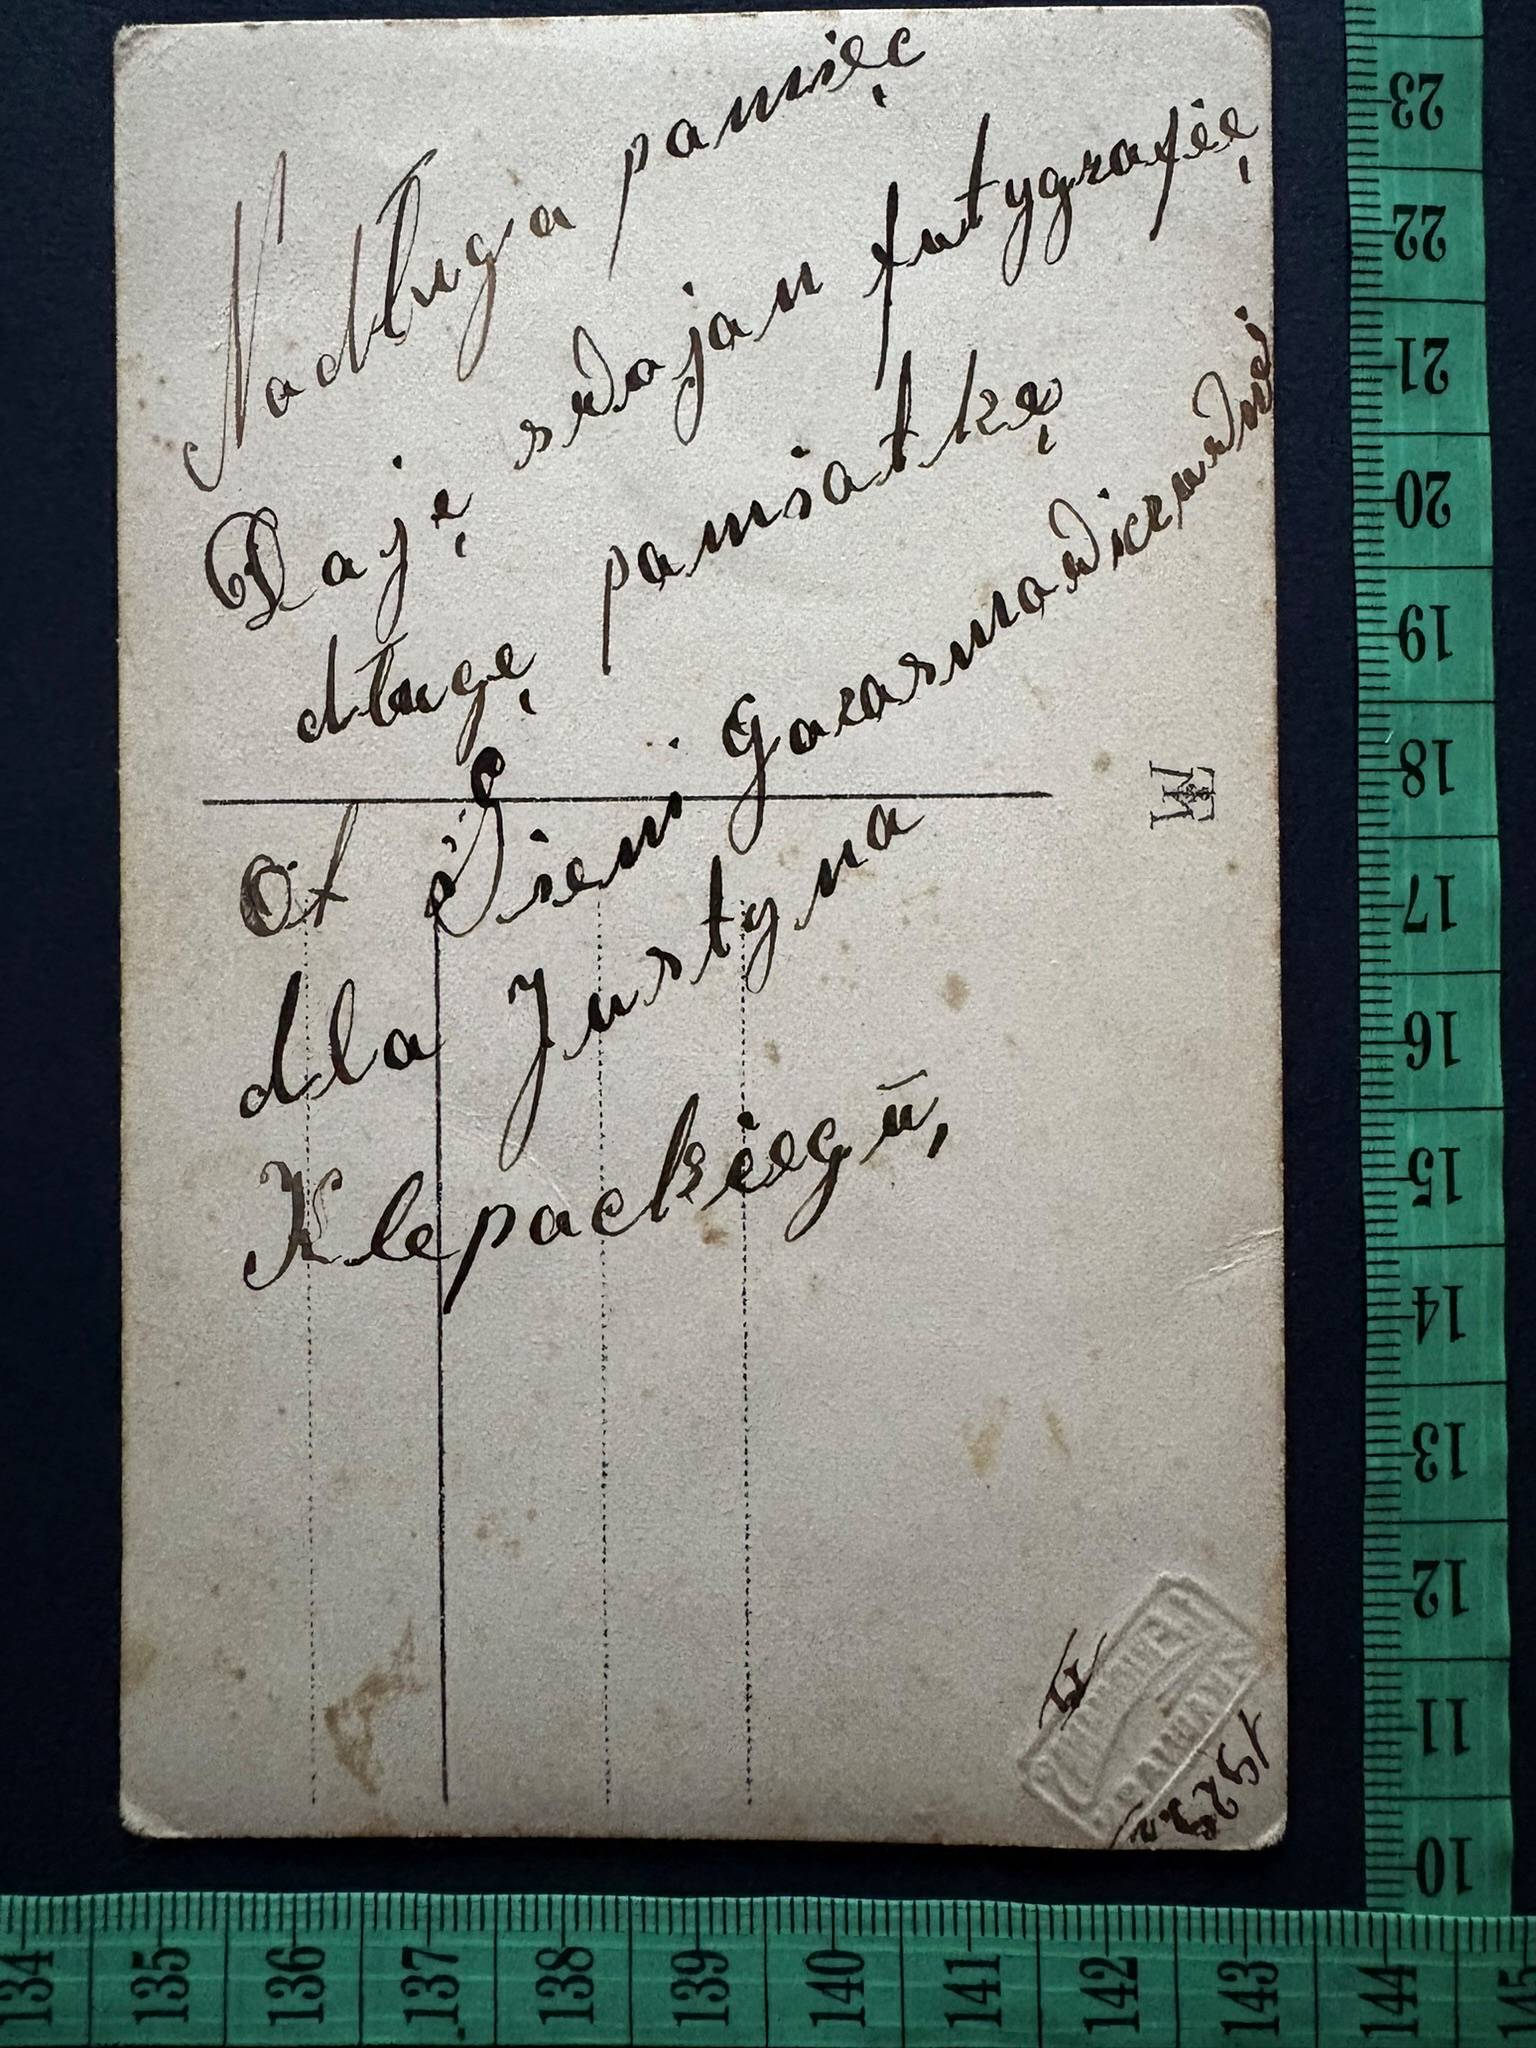 Nadługa pamięc
Daję swojan futygrafię
długę pamiatkę
Ot Gieni
dla Justyna
Klepackiegu,
EM
1925 r.
23
22
21
20
19
18
17
16
15
14
13
12
11
10
134 135 136 137 138 139 140 141 142 143 144 145